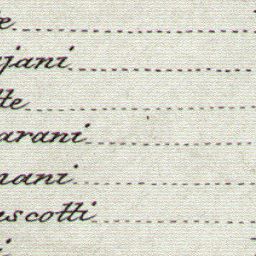 e
ajani
tte
arani
nani
uscotti
i